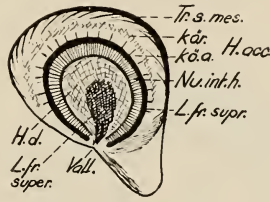 Tr.s.mes.
kår. H.acc
kö.a.
Nu.int.h.
L.fr. supr.
H.d.
L.fr.
super.
Vall.